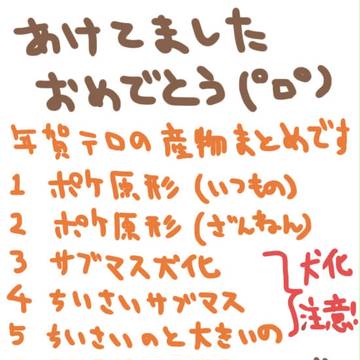 あけてました
おめでとう(°ロ°)
年賀テロの産物まとめです
1 ポケ原形(いつもの)
2 ポケ原形(ざんねん)
3 サブマス犬化
4 ちいさいサブマス
5 ちいさいのと大きいの
犬化
注意!